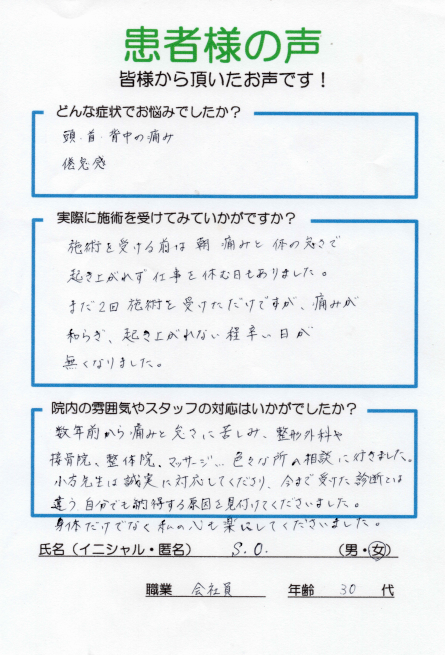 患者様の声
皆様から頂いたお声です！
どんな症状でお悩みでしたか？
頭・首・背中の痛み
倦怠感
実際に施術を受けてみていかがですか？
施術を受ける前は朝痛みと体の怠さで
起き上がれず仕事を休む日もありました。
まだ2回施術を受けただけですが、痛みが
和らぎ、起き上がれない程辛い日が
無くなりました。
院内の雰囲気やスタッフの対応はいかがでしたか？
数年前から痛みと怠さに苦しみ、整形外科や
接骨院、整体院、マッサージ…色々な所へ相談に行きました。
小方先生は誠実に対応してくださり、今まで受けた診断とは
違う、自分でも納得する原因を見付けてくださいました。
身体だけでなく私の心も楽にしてくださいました。
氏名（イニシャル・匿名） S.O. （男・女）
職業 会社員 年齢 30 代